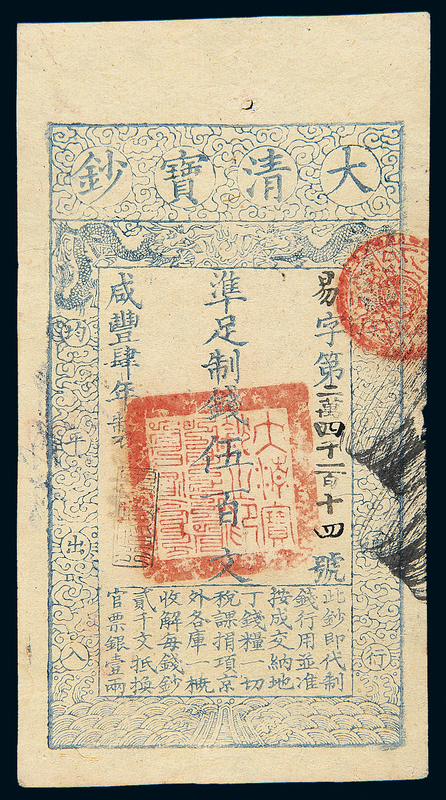 大清寶鈔
易字第二萬四千一百十四號
準足制錢伍百文
咸豐肆年製
行
均平出入
此鈔即代制
錢行用並准
按成交納地
丁錢糧一切
稅課捐項京
外各庫一概
收解每錢鈔
貳千文抵換
官票銀壹兩
大清寶鈔之印